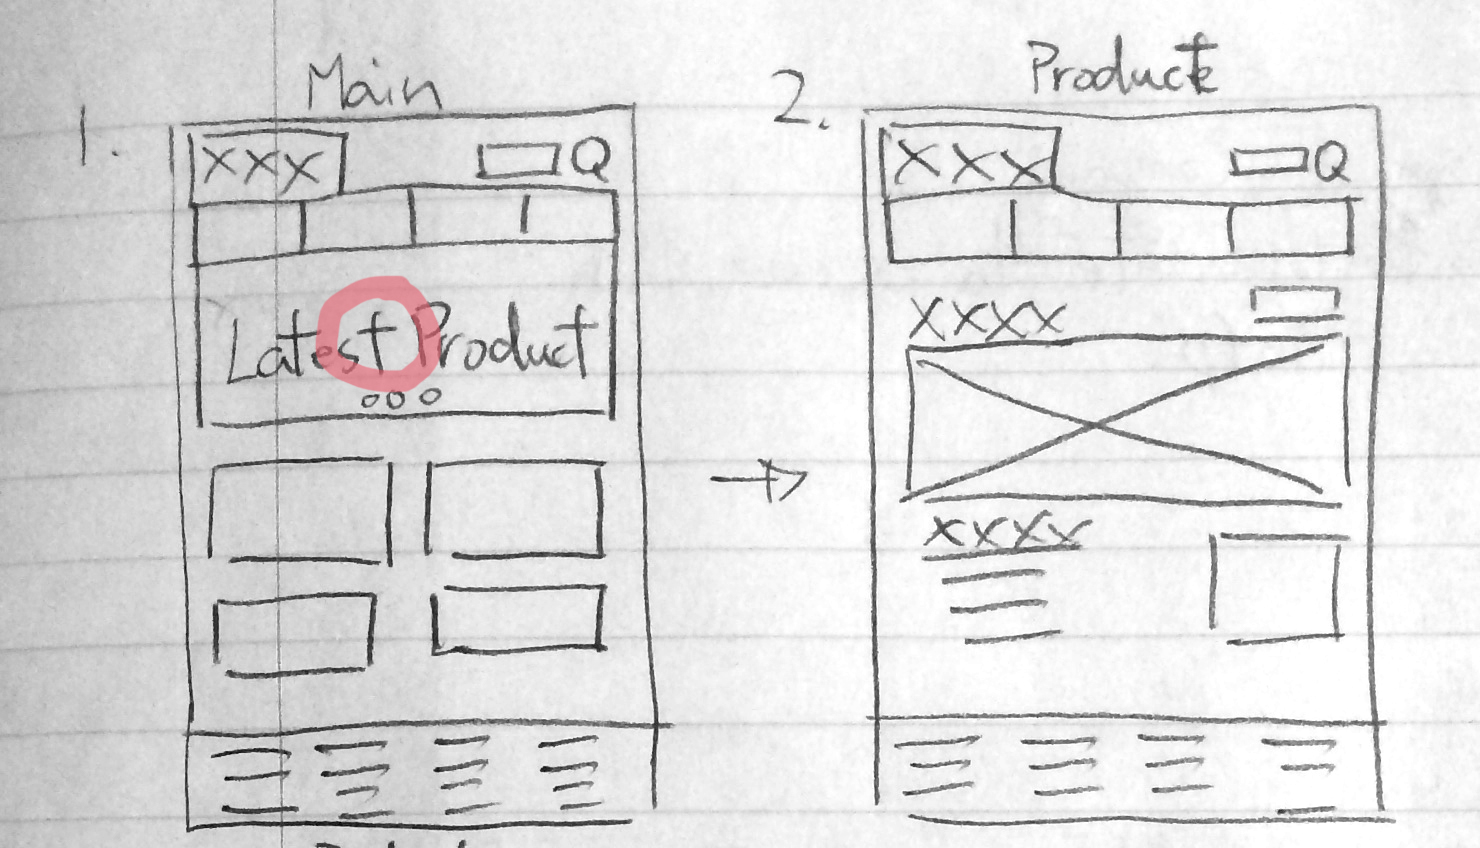 Main
1.
XXX
Q
Latest Product
2.
Product
XXX
Q
XXXX
XXXX